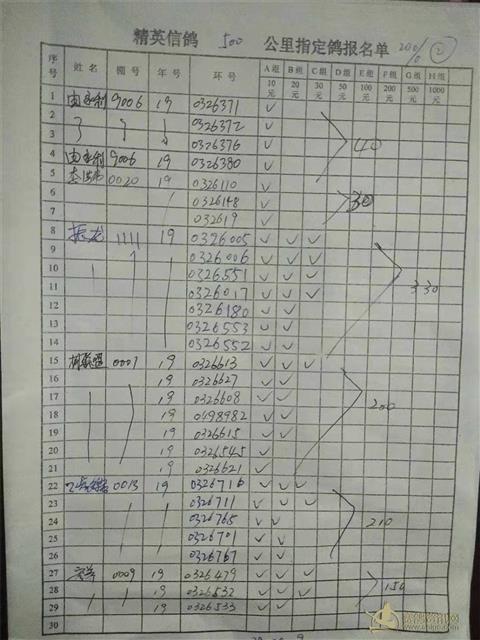 精英信鸽 500 公里指定鸽报名单 ②
序号 姓名 棚号 年号 环号 A组10元 B组20元 C组30元 D组50元 E组100元 F组200元 G组500元 H组1000元
1 9006 19 0326371 ✓
2 0326372 ✓
3 0326376 ✓ 40
4 9006 19 0326380 ✓
5 0020 19 0326110 ✓
6 0326148 ✓ 30
7 032619 ✓
8 振龙 1111 19 0326005 ✓ ✓ ✓
9 0326006 ✓ ✓ ✓
10 0326551 ✓ ✓ ✓
11 0326017 ✓ ✓ ✓ 330
12 0326180 ✓ ✓
13 0326553 ✓ ✓
14 0326552 ✓ ✓
15 0007 19 0326613 ✓ ✓ ✓
16 19 0326627 ✓ ✓
17 19 0326608 ✓ ✓
18 19 0498982 ✓ ✓ 200
19 19 0326615 ✓ ✓
20 19 0326545 ✓
21 19 0326621 ✓
22 0013 19 0326716 ✓ ✓ ✓
23 0326711 ✓ ✓ ✓
24 0326765 ✓ ✓ 210
25 0326701 ✓ ✓
26 0326767 ✓ ✓
27 0009 19 0326479 ✓ ✓ ✓
28 19 0326532 ✓ ✓ ✓ 150
29 19 0326533 ✓ ✓ ✓
30